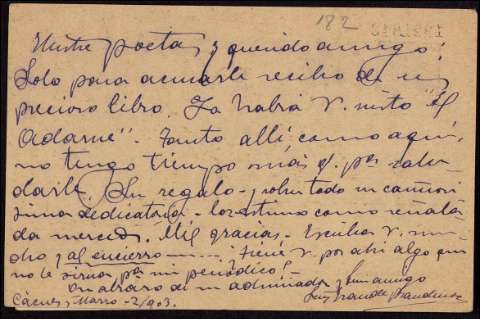 182
Ilustre poeta, y querido amigo:
Solo para acusarle recibo de su
precioso libro. Ya habrá V. visto "El
Adarve". Tanto allí, como aquí,
no tengo tiempo más q. para salu-
darle. Su regalo - y sobre todo su cariñosí-
sima dedicatoria - los estimo como señala-
da merced. Mil gracias. - Escriba V. mu-
cho y al encierro ...... ¿Tiene V. por ahí algo que
no le sirva, para mi periódico?
Un abrazo de su admirador y buen amigo
Cáceres, Marzo - 2/903.